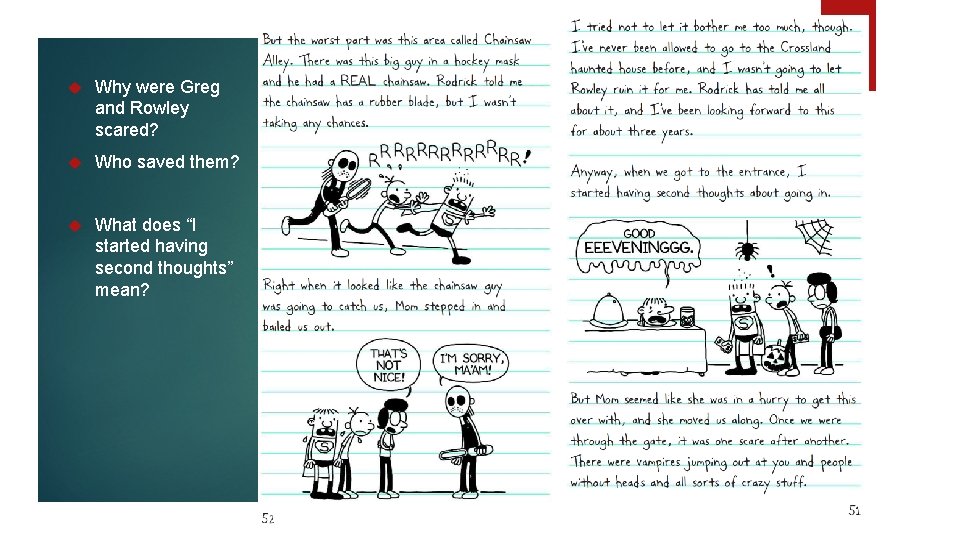 Why were Greg
and Rowley
scared?
Who saved them?
What does “I
started having
second thoughts”
mean?
But the worst part was this area called Chainsaw
Alley. There was this big guy in a hockey mask
and he had a REAL chainsaw. Rodrick told me
the chainsaw has a rubber blade, but I wasn't
taking any chances.
RRRRRRRRRRRRR!
Right when it looked like the chainsaw guy
was going to catch us, Mom stepped in and
bailed us out.
THAT'S
NOT
NICE!
I'M SORRY,
MA'AM!
S
52
I tried not to let it bother me too much, though.
I've never been allowed to go to the Crossland
haunted house before, and I wasn't going to let
Rowley ruin it for me. Rodrick has told me all
about it, and I've been looking forward to this
for about three years.
Anyway, when we got to the entrance, I
started having second thoughts about going in.
GOOD
EEEVENINGGG.
!
S
But Mom seemed like she was in a hurry to get this
over with, and she moved us along. Once we were
through the gate, it was one scare after another.
There were vampires jumping out at you and people
without heads and all sorts of crazy stuff.
51